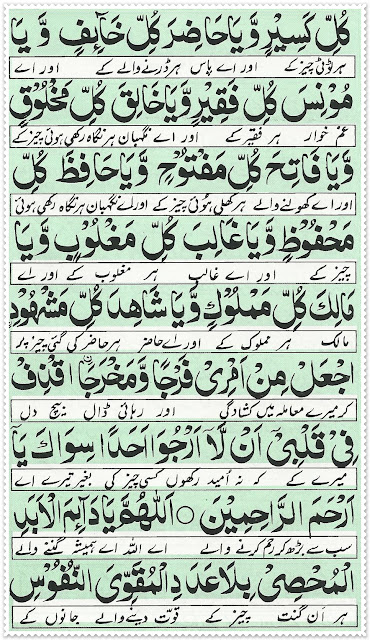 كُلِّ كَسِيْرٍ وَّيَا حَاضِرَ كُلِّ خَآئِفٍ وَّيَا
ہر ٹوٹی چیز کے اور اے پاس ہر ڈرنے والے کے اور اے
مُوْنِسَ كُلِّ فَقِيْرٍ وَّيَا خَالِقَ كُلِّ مَخْلُوْقٍ
غم خوار ہر فقیر کے اور اے نگہبان ہر نگاہ رکھی ہوئی چیز کے
وَّيَا فَاتِحَ كُلِّ مَفْتُوْحٍ وَّيَا حَافِظَ كُلِّ
اور اے کھولنے والے ہر کھلی ہوئی چیز کے اور اے نگہبان ہر نگاہ رکھی ہوئی
مَحْفُوْظٍ وَّيَا غَالِبَ كُلِّ مَغْلُوْبٍ وَّيَا
چیز کے اور اے غالب ہر مغلوب کے اور اے
مَالِكَ كُلِّ مَمْلُوْكٍ وَّيَا شَاهِدَ كُلِّ مَشْهُوْدٍ
مالک ہر مملوک کے اور اے حاضر ہر حاضر کی گئی چیز پر
اجْعَلْ مِنْ اَمْرِيْ فَرَجًا وَّمَخْرَجًا اقْذِفْ
کر میرے معاملہ میں کشادگی اور رہائی ڈال بیچ دل
فِيْ قَلْبِيْ اَنْ لَّآ اَرْجُوْا اَحَدًا سِوَاكَ يَآ
میرے کے کہ نہ اُمید رکھوں کسی چیز کی بغیر تیرے اے
اَرْحَمَ الرَّاحِمِيْنَ ○ اَللّٰهُمَّ يَا دَآئِمَ الْاَبَدِ
سب سے بڑھ کر رحم کرنے والے اے اللہ اے ہمیشہ گننے والے
الْمُحْصِيْ بِلَا عَدَدِ الْمُقَوِّيَ النُّفُوْسِ
ہر اَن گنت چیز کے قوت دینے والے جانوں کے